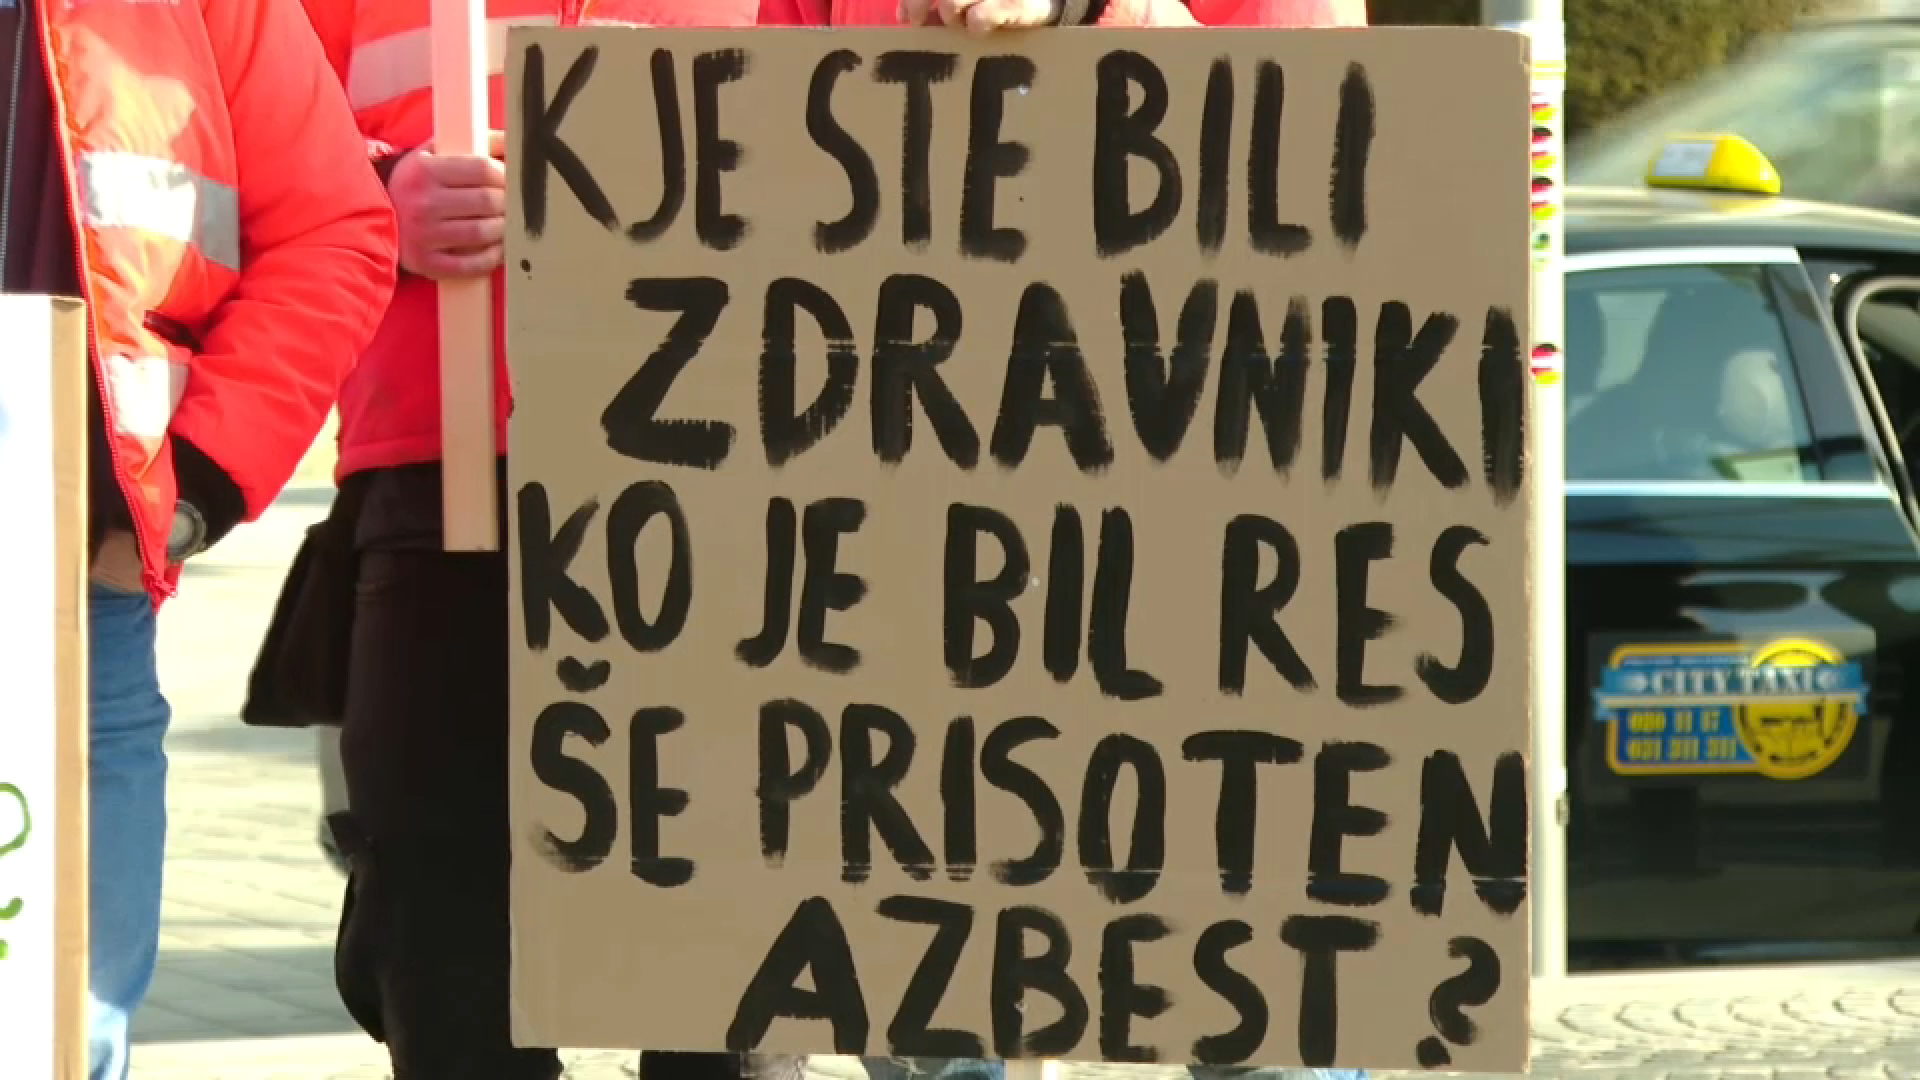 KJE STE BILI
ZDRAVNIKI
KO JE BIL RES
ŠE PRISOTEN
AZBEST?
CITY TAXI
080 11 17
031 311 311